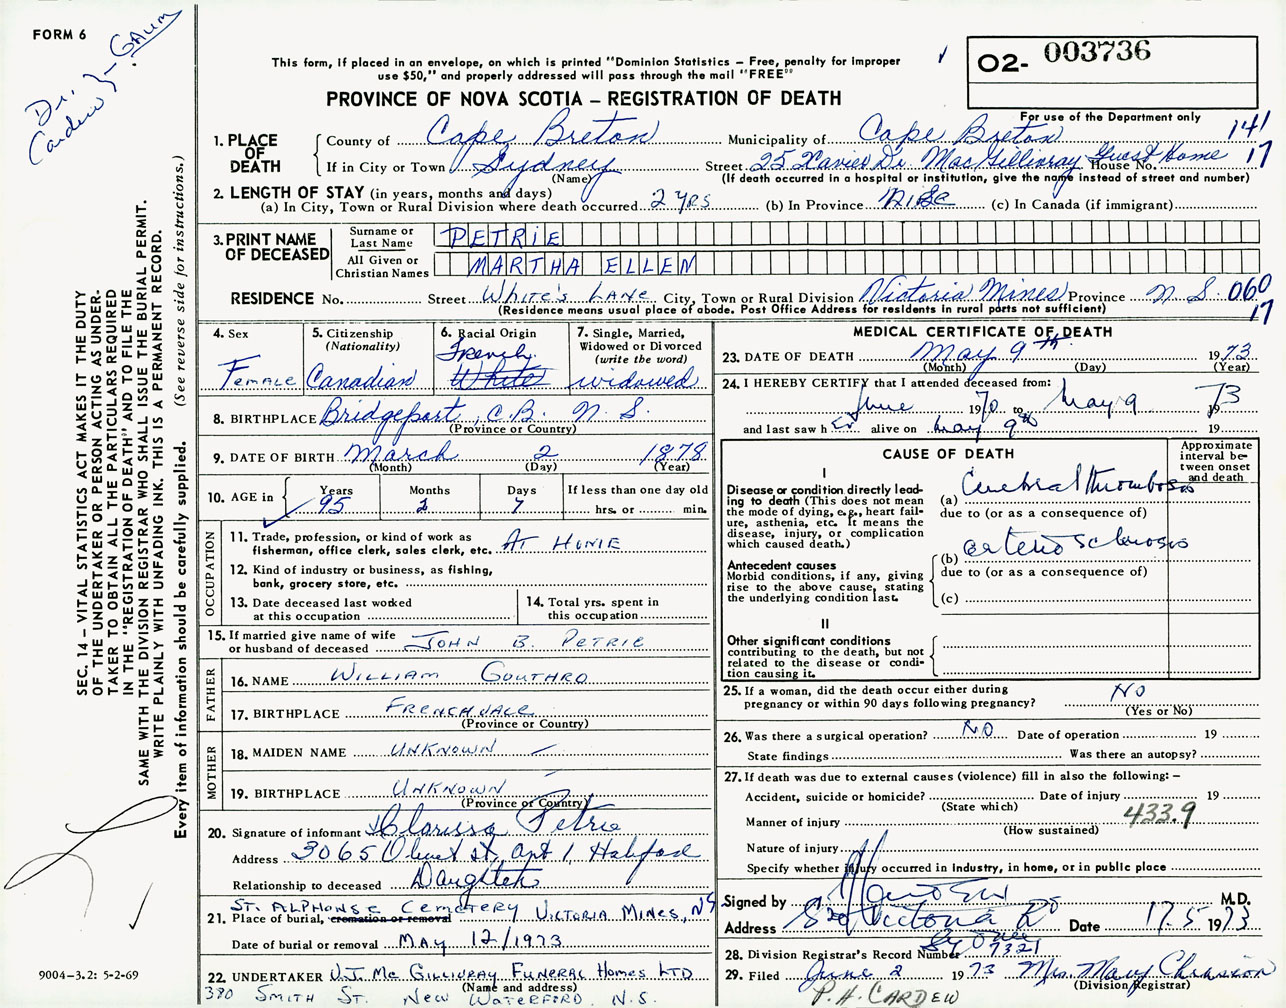 FORM 6
Dr. Cardew
This form, if placed in an envelope, on which is printed "Dominion Statistics – Free, penalty for improper
use $50," and properly addressed will pass through the mail "FREE"
PROVINCE OF NOVA SCOTIA – REGISTRATION OF DEATH
02- 003736
For use of the Department only
141
17
1. PLACE OF DEATH
County of Cape Breton Municipality of Cape Breton
If in City or Town Sydney Street 25 Xavier Dr. MacGillivray Guest Home House No.
(Name) (If death occurred in a hospital or institution, give the name instead of street and number)
2. LENGTH OF STAY (in years, months and days)
(a) In City, Town or Rural Division where death occurred 2 yrs (b) In Province (c) In Canada (if immigrant)
3. PRINT NAME OF DECEASED
Surname or Last Name PETRIE
All Given or Christian Names MARTHA ELLEN
RESIDENCE No. Street White's Lane City, Town or Rural Division Victoria Mines Province N.S. 060
(Residence means usual place of abode. Post Office Address for residents in rural parts not sufficient) 17
4. Sex Female
5. Citizenship (Nationality) Canadian
6. Racial Origin French White
7. Single, Married, Widowed or Divorced (write the word) widowed
8. BIRTHPLACE Bridgeport, C.B. N.S.
(Province or Country)
9. DATE OF BIRTH March 2 1878
(Month) (Day) (Year)
10. AGE in Years 95 Months 2 Days 7 If less than one day old hrs. or min.
OCCUPATION
11. Trade, profession, or kind of work as
fisherman, office clerk, sales clerk, etc. AT HOME
12. Kind of industry or business, as fishing,
bank, grocery store, etc.
13. Date deceased last worked
at this occupation
14. Total yrs. spent in
this occupation
15. If married give name of wife
or husband of deceased JOHN B. PETRIE
FATHER
16. NAME WILLIAM GOUTHRO
17. BIRTHPLACE FRENCHVALE
(Province or Country)
MOTHER
18. MAIDEN NAME UNKNOWN
19. BIRTHPLACE UNKNOWN
(Province or Country)
20. Signature of informant Clarissa Petrie
Address 3065 St, Apt 1, Halifax
Relationship to deceased Daughter
21. Place of burial, cremation or removal ST. ALPHONSE CEMETERY VICTORIA MINES, NS
Date of burial or removal MAY 12/1973
22. UNDERTAKER V.J. McGILLIVRAY FUNERAL HOMES LTD
(Name and address)
380 SMITH ST. NEW WATERFORD, N.S.
MEDICAL CERTIFICATE OF DEATH
23. DATE OF DEATH May 9th 1973
(Month) (Day) (Year)
24. I HEREBY CERTIFY that I attended deceased from:
June 1970 to May 9 1973
and last saw her alive on May 9th 19
CAUSE OF DEATH
Approximate interval between onset and death
I
Disease or condition directly leading to death (This does not mean
the mode of dying, e.g., heart failure, asthenia, etc. It means the
disease, injury, or complication
which caused death.)
(a) Cerebral thrombosis
due to (or as a consequence of)
Antecedent causes
Morbid conditions, if any, giving
rise to the above cause, stating
the underlying condition last.
(b) arteriosclerosis
due to (or as a consequence of)
(c)
II
Other significant conditions
contributing to the death, but not
related to the disease or condition causing it.
25. If a woman, did the death occur either during
pregnancy or within 90 days following pregnancy? NO
(Yes or No)
26. Was there a surgical operation? NO Date of operation 19
State findings Was there an autopsy?
27. If death was due to external causes (violence) fill in also the following: –
Accident, suicide or homicide? Date of injury 19
(State which)
Manner of injury 433.9
(How sustained)
Nature of injury
Specify whether injury occurred in Industry, in home, or in public place
Signed by M.D.
Address Victoria Rd Date 17.5 1973
28. Division Registrar's Record Number 07321
29. Filed June 2 1973 Mrs. Mary
(Division Registrar)
P.A. CARDEW
SEC. 14 – VITAL STATISTICS ACT MAKES IT THE DUTY
OF THE UNDERTAKER OR PERSON ACTING AS UNDER-
TAKER TO OBTAIN ALL THE PARTICULARS REQUIRED
IN THE "REGISTRATION OF DEATH" AND TO FILE THE
SAME WITH THE DIVISION REGISTRAR WHO SHALL ISSUE THE BURIAL PERMIT.
WRITE PLAINLY WITH UNFADING INK. THIS IS A PERMANENT RECORD.
Every item of information should be carefully supplied. (See reverse side for instructions.)
9004-3.2: 5-2-69